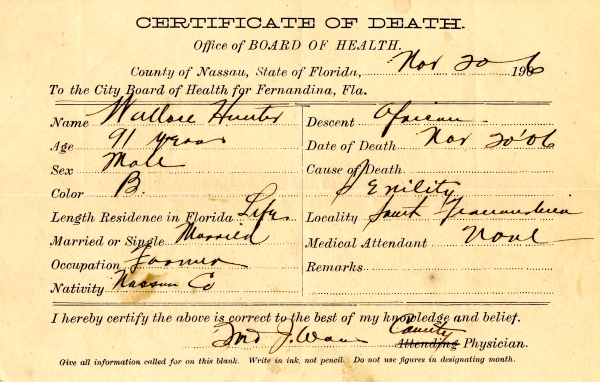 CERTIFICATE OF DEATH.
Office of BOARD OF HEALTH.
County of Nassau, State of Florida, Nov 20 1906
To the City Board of Health for Fernandina, Fla.
Name Wallace Hunter
Age 91 years
Sex Male
Color B.
Length Residence in Florida Life
Married or Single Married
Occupation Farmer
Nativity Nassau Co
Descent African
Date of Death Nov 20 '06
Cause of Death
Senility
Locality South Fernandina
Medical Attendant None
Remarks
I hereby certify the above is correct to the best of my knowledge and belief.
J. County
Attending Physician.
Give all information called for on this blank. Write in ink, not pencil. Do not use figures in designating month.